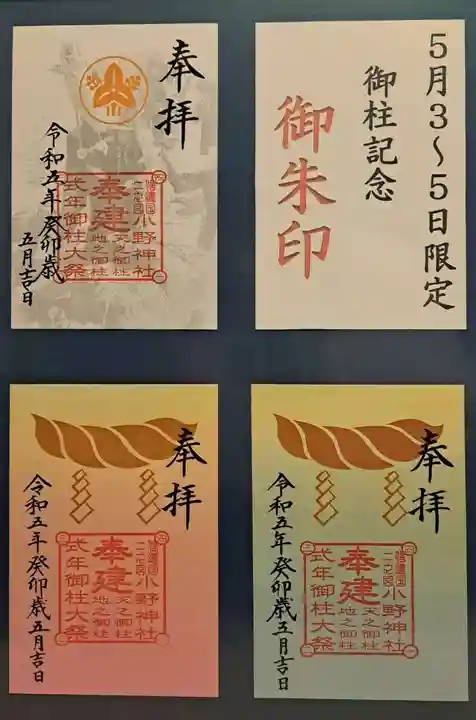 奉拝
令和五年癸卯歳
五月吉日
信濃国二之宮
小野神社
奉建
天之御柱
地之御柱
式年御柱大祭
5月3～5日限定
御柱記念
御朱印
奉拝
令和五年癸卯歳五月吉日
信濃国二之宮
小野神社
奉建
天之御柱
地之御柱
式年御柱大祭
奉拝
令和五年癸卯歳五月吉日
信濃国二之宮
小野神社
奉建
天之御柱
地之御柱
式年御柱大祭